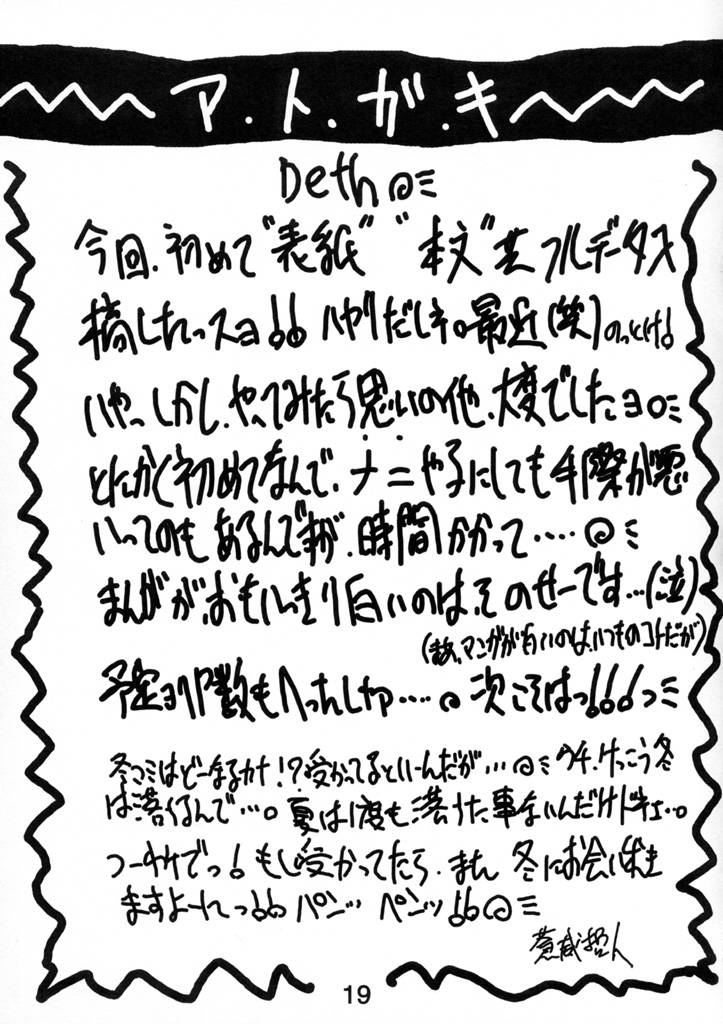 ア.ト.ガ.キ
Deth
今回、初めて"表紙" "本文"共フルデータ入
稿したっスョ!! ハヤリだしネ。最近(笑)のっとけ!
いやっ、しかし、やってみたら思いの他、大変でしたョ。
とにかく初めてなんで、ナニやるにしても手際が悪
いってのも あるんですが、時間かかって‥‥
まんがが、おもいっきり白いのは、そのせーです…(泣)
(まあ、マンガが白いのは、いつものコトだが)
予定ョリP数もへっちゃし ‥‥。次こそはっ!!!っ
冬コミはどーなるカナ!?受かってるといーんだが… ウチ、けっこう冬
は落ちるんで…。夏は1度も、落ちた事ないんだけドネェ…。
つーわけでっ! もし受かってたら、また 冬にお会いしま
ますよーれっ!! パンッ ペンッ!!
蒼威哲人
19